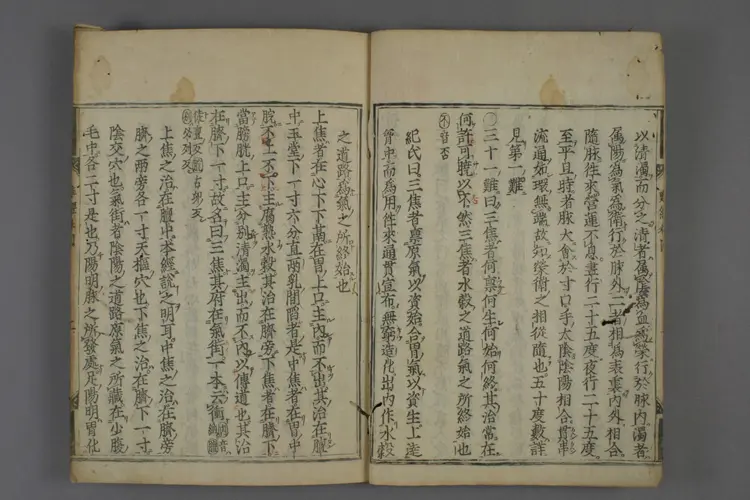 以清濁而分之清者屬陰為血為榮行於脉内濁者
屬陽為氣為衛行於脉外二者相為表裏内外相合
隨脉徃來營運不息晝行二十五度夜行二十五度
至平旦時者脉大會於寸口手太陰陰陽相合貫串
流通如環無端故知榮衛之相從隨也五十度數詳
見第一難
〇三十一難曰三焦者何稟何生何始何終其治常在
何許可曉以不然三焦者水穀之道路氣之所終始也
不音否
紀氏曰三焦者稟原氣以資始合胃氣以資生上達
胷中而為用徃來通貫宣布無窮造化出内作水穀
之道路為氣之所終始也
上焦者在心下下膈在胃上口主内而不出其治在膻
中玉堂下一寸六分直兩乳間陷者是中焦者在胃中
脘不上不下主腐熟水穀其治在臍旁下焦者在臍下
當膀胱上口主分别清濁主出而不内以傳道也其治
在臍下一寸故名曰三焦其府在氣街一本云衝
上焦之治在膻中本經說之明耳中焦之治在臍旁
臍之兩旁各一寸天樞穴也下焦之治在臍下一寸
陰交穴也氣街者陰陽之道路原氣之所藏在少腹
毛中各二寸是也乃陽明脉之所發處足陽明胃化